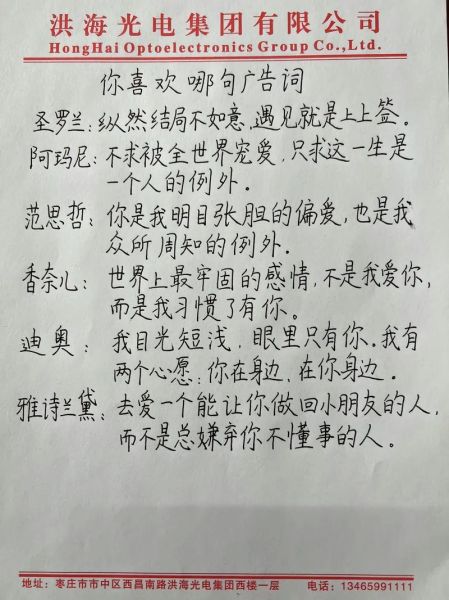 洪海光电集团有限公司
HongHai Optoelectronics Group Co.,Ltd.
你喜欢哪句广告词
圣罗兰：纵然结局不如意，遇见就是上上签。
阿玛尼：不求被全世界宠爱，只求这一生是
一个人的例外。
范思哲：你是我明目张胆的偏爱，也是我
众所周知的例外。
香奈儿：世界上最牢固的感情，不是我爱你，
而是我习惯了有你。
迪奥：我目光短浅，眼里只有你。我有
两个心愿：你在身边，在你身边。
雅诗兰黛：去爱一个能让你做回小朋友的人，
而不是总嫌弃你不懂事的人。
地址：枣庄市市中区西昌南路洪海光电集团西楼一层 电话：13465991111